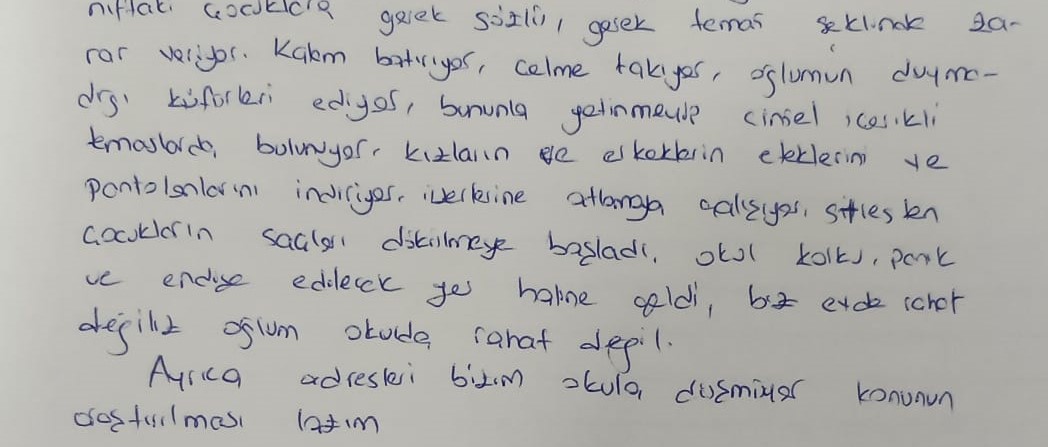 çocuklara gerek sözlü, gerek temas şeklinde za-
rar veriyor. Kalem batırıyor, çelme takıyor, oğlumun duyma-
dığı küfürleri ediyor, bununla yetinmeyip cinsel içerikli
temaslarda bulunuyor. kızların ve erkeklerin eteklerini ve
pantolonlarını indiriyor. üzerlerine atlamaya çalışıyor. stresten
çocukların saçları dökülmeye başladı. okul korku, panik
ve endişe edilecek yer haline geldi, biz evde rahat
değiliz oğlum okulda rahat değil.
Ayrıca adresleri bizim okula düşmüyor konunun
araştırılması lazım